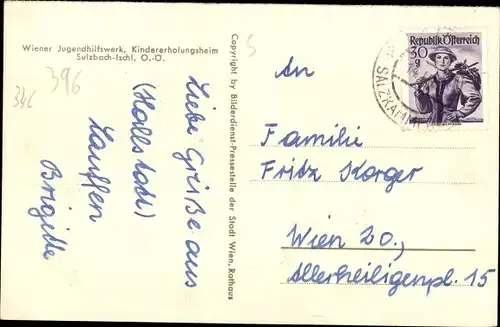 Wiener Jugendhilfswerk, Kindererholungsheim
Sulzbach-Ischl, O.-Ö.
396
346
Liebe Grüße aus
(Hallstatt)
Lauffen
Brigitte
Copyright by Bilderdienst-Pressestelle der Stadt Wien, Rathaus
5
Republik Österreich
30
g
SALZKAM
An
Familie
Fritz Korger
Wien 20.,
Allerheiligenpl. 15